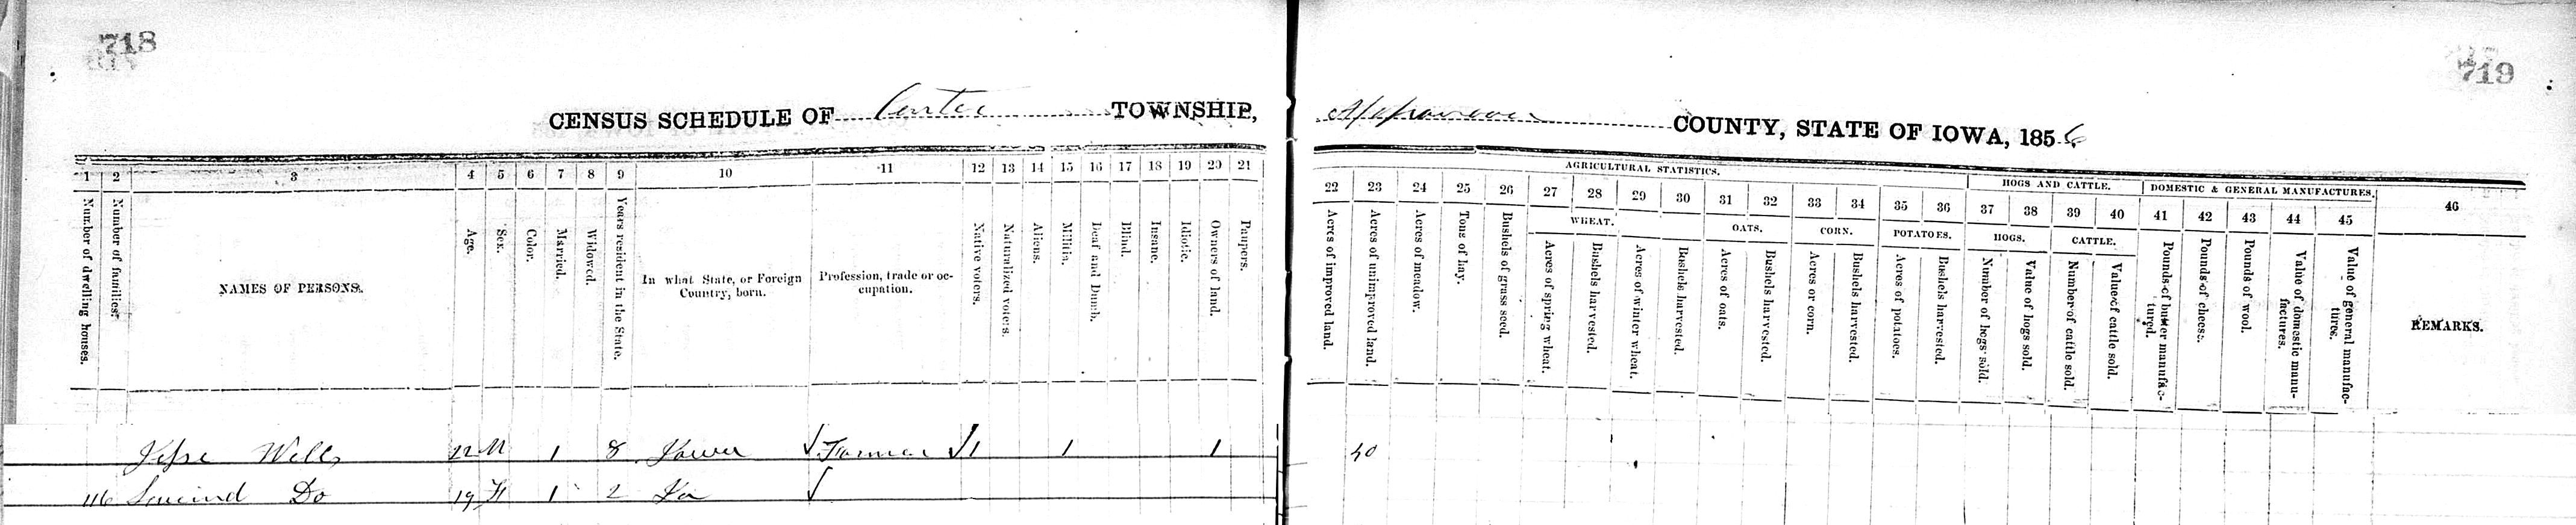 718
719
CENSUS SCHEDULE OF Center TOWNSHIP, Appanoose COUNTY, STATE OF IOWA, 1856
AGRICULTURAL STATISTICS.
HOGS AND CATTLE.
DOMESTIC & GENERAL MANUFACTURES.
1 2 3 4 5 6 7 8 9 10 11 12 13 14 15 16 17 18 19 20 21
22 23 24 25 26 27 28 29 30 31 32 33 34 35 36 37 38 39 40 41 42 43 44 45 46
WHEAT. OATS. CORN. POTATOES. HOGS. CATTLE.
Number of dwelling houses.
Number of families.
NAMES OF PERSONS.
Age.
Sex.
Color.
Married.
Widowed.
Years resident in the State.
In what State, or Foreign Country, born.
Profession, trade or occupation.
Native voters.
Naturalized voters.
Aliens.
Militia.
Deaf and Dumb.
Blind.
Insane.
Idiotic.
Owners of land.
Paupers.
Acres of improved land.
Acres of unimproved land.
Acres of meadow.
Tons of hay.
Bushels of grass seed.
Acres of spring wheat.
Bushels harvested.
Acres of winter wheat.
Bushels harvested.
Acres of oats.
Bushels harvested.
Acres or corn.
Bushels harvested.
Acres of potatoes.
Bushels harvested.
Number of hogs sold.
Value of hogs sold.
Number of cattle sold.
Value of cattle sold.
Pounds of butter manufactured.
Pounds of cheese.
Pounds of wool.
Value of domestic manufactures.
Value of general manufactures.
REMARKS.
Jesse Wells 22 M 1 8 Farmer 1 1 1 40
116 Do 19 F 1 2